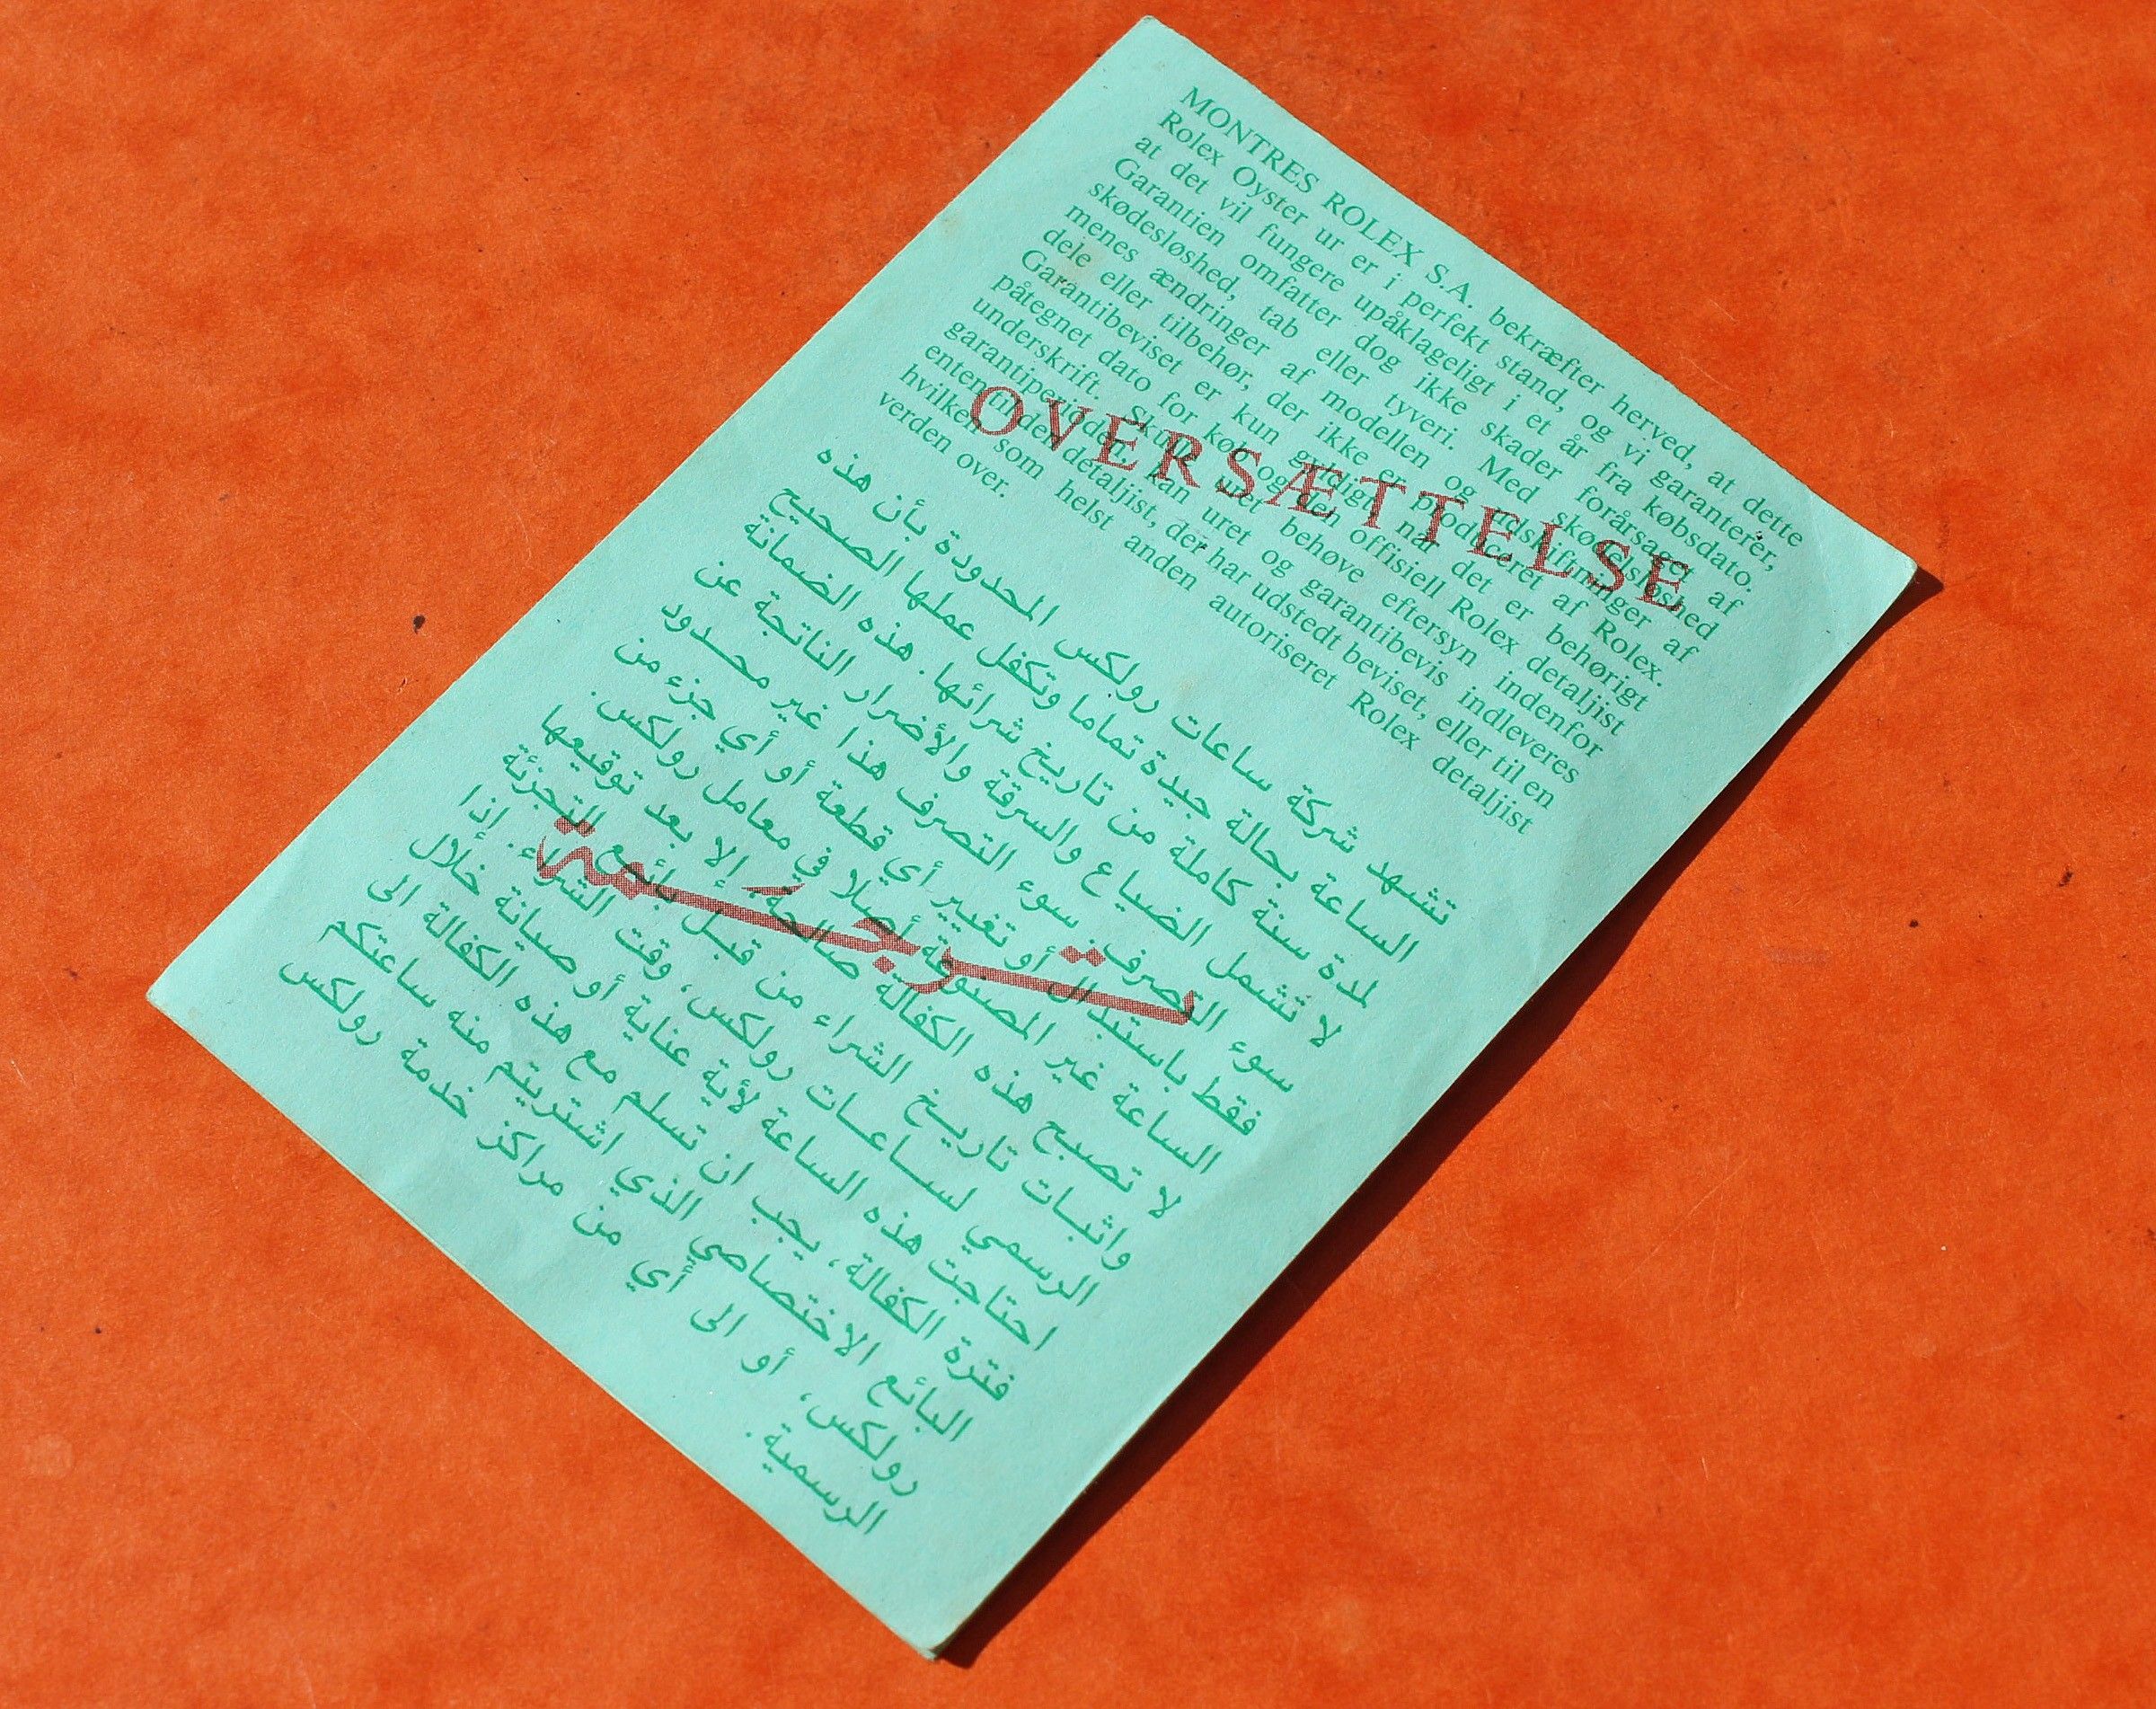 MONTRES ROLEX S.A. bekræfter herved, at dette
Rolex Oyster ur er i perfekt stand, og vi garanterer,
at det vil fungere upåklageligt i et år fra købsdato.
Garantien omfatter dog ikke skader forårsaget af
skødesløshed, tab eller tyveri. Med skødesløshed
menes ændringer af modellen og udskiftninger af
dele eller tilbehør, der ikke er produceret af Rolex.
Garantibeviset er kun gyldigt, når det er behørigt
påtegnet dato for køb og den offisiell Rolex detaljist
underskrift. Skulle uret behøve eftersyn indenfor
garantiperioden, kan uret og garantibevis indleveres
enten til den detaljist, der har udstedt beviset, eller til en
hvilken som helst anden autoriseret Rolex detaljist
verden over.
OVERSÆTTELSE
تشهد شركة ساعات رولكس المحدودة بأن هذه
الساعة بحالة جيدة تماما وتكفل عملها الصحيح
لمدة سنة كاملة من تاريخ شرائها. هذه الضمانة
لا تشمل الضياع والسرقة والأضرار الناتجة عن
سوء التصرف. سوء التصرف هذا غير محدود
فقط باستبدال أو تغيير أي قطعة أو أي جزء من
الساعة غير المصنوعة أصلا في معامل رولكس.
لا تصبح هذه الكفالة صالحة، إلا بعد توقيعها
واثبات تاريخ الشراء من قبل بائع التجزئة
الرسمي لساعات رولكس، وقت الشراء. إذا
احتاجت هذه الساعة لأية عناية أو صيانة خلال
فترة الكفالة، يجب ان تسلم مع هذه الكفالة الى
البائع الاختصاصي الذي اشتريتم منه ساعتكم
رولكس، أو الى أي من مراكز خدمة رولكس
الرسمية.
ترجمة